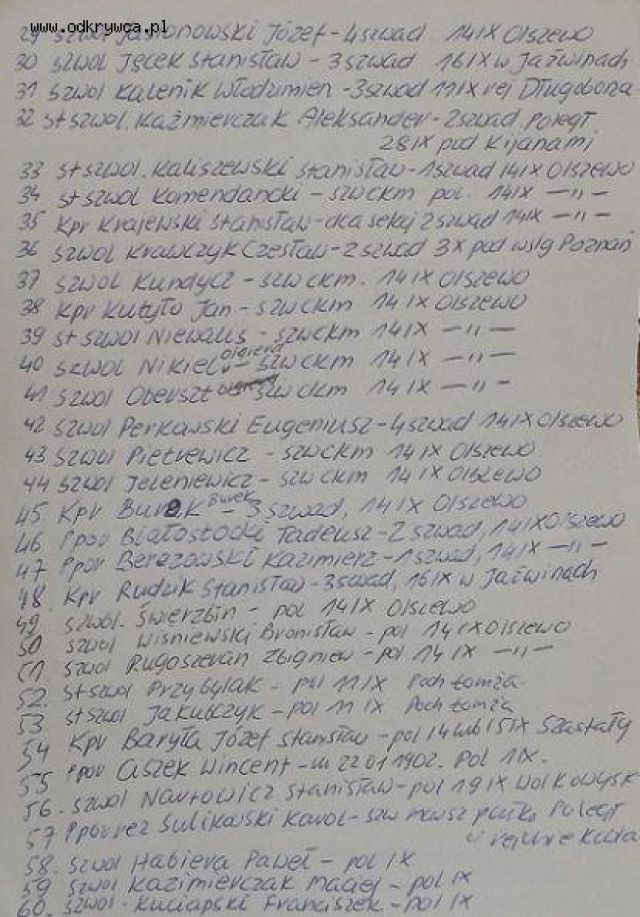 www.odkrywca.pl
29 szwol Jasionowski Józef - 4 szwad 14 IX Olszewo
30 szwol Jęcek Stanisław - 3 szwad 16 IX w Jaźwinach
31 szwol Kalenik Włodzimien - 3 szwad 11 IX rej Długobona
32 st szwol. Kaźmierczak Aleksander - 2 szwad. poległ
28 IX pod Kijanami
33 st szwol. Kaliszewski Stanisław - 1 szwad 14 IX Olszewo
34 st szwol Komendancki - szw ckm pol. 14 IX —„—
35 kpr Krajewski Stanisław - dca sekcj 2 szwad 14 IX —„—
36 szwol Krawczyk Czesław - 2 szwad 3 X pod wsią Poznań
37 szwol Kundycz - szw ckm. 14 IX Olszewo
38 kpr Kutyło Jan - szw ckm 14 IX Olszewo
39 st szwol Niewalis - szw ckm 14 IX —„—
40 szwol Nikiel - szw ckm 14 IX —„—
41 szwol Oberszt szw ckm 14 IX —„—
42 szwol Perkawski Eugeniusz - 4 szwad 14 IX Olszewo
43 szwol Pietrewicz - szw ckm 14 IX Olszewo
44 szwol Jeleniewicz - szw ckm 14 IX Olszewo
45. kpr Burek Burek - 3 szwad, 14 IX Olszewo
46 ppor Białostocki Tadeusz - 2 szwad, 14 IX Olszewo
47 ppor Berezowski Kazimierz - 1 szwad, 14 IX —„—
48. kpr Rudzik Stanisław - 3 szwad, 16 IX w Jaźwinach
49 szwol. Świerzbin - pol 14 IX Olszewo
50 szwol Wiśniewski Bronisław - pol 14 IX Olszewo
51 szwol Zbigniew - pol 14 IX —„—
52. st szwol Przybylak - pol 11 IX Pod Łomżą
53 st szwol Jakubczyk - pol 11 IX Pod Łomżą
54 kpr Baryła Józef Stanisław - pol 14 lub 15 IX Szastały
55 ppor Ciszek Wincent - ur 22 01 1902. pol IX.
56. szwol Nartowicz Stanisław - pol 19 IX Wołkowysk
57 ppor rez Sulikowski Karol - szw pułk. Poległ
w
58. szwol Habiera Paweł - pol IX
59 szwol Kazimierczak Maciej - pol IX
60. szwol. Kuciapski Franciszek - pol IX